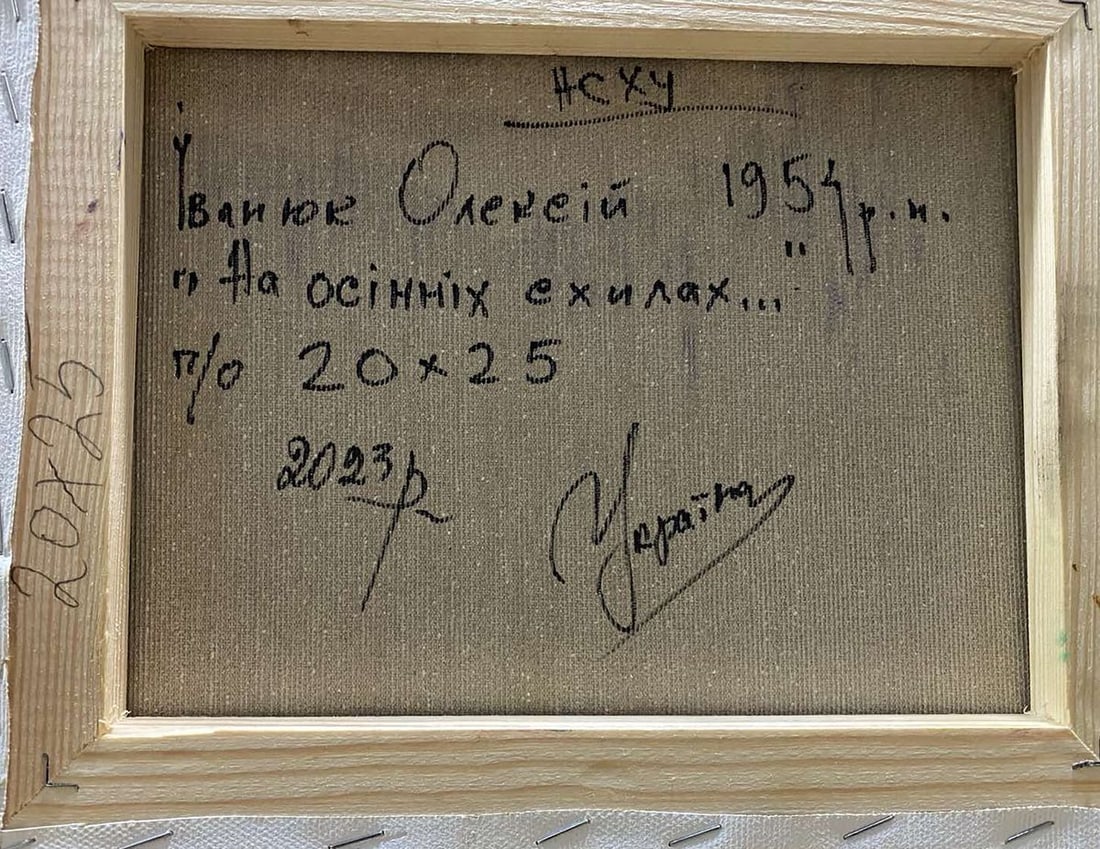 НСХУ
Іванюк Олексій 1954 р.н.
"На осінніх схилах..."
п/о 20×25
2023р
Україна
20×25